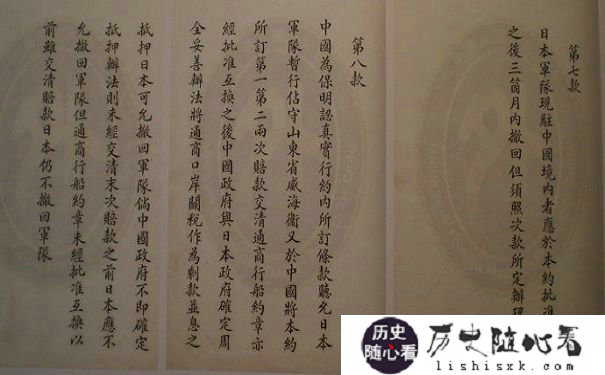 第七款
日本軍隊現駐中國境內者應於本約批准
之後三箇月內撤回但須照次款所定辦理
第八款
中國為保明認真實行約內所訂條款聽允日本
軍隊暫行佔守山東省威海衛又於中國將本約
所訂第一第二兩次賠款交清通商行船約章亦
經批准互換之後中國政府與日本政府確定周
全妥善辦法將通商口岸關稅作為剩款並息之
抵押日本可允撤回軍隊倘中國政府不即確定
抵押辦法則未經交清末次賠款之前日本應不
允撤回軍隊但通商行船約章未經批准互換以
前雖交清賠款日本仍不撤回軍隊
历史
随心看
历史随心看
lishisxk.com